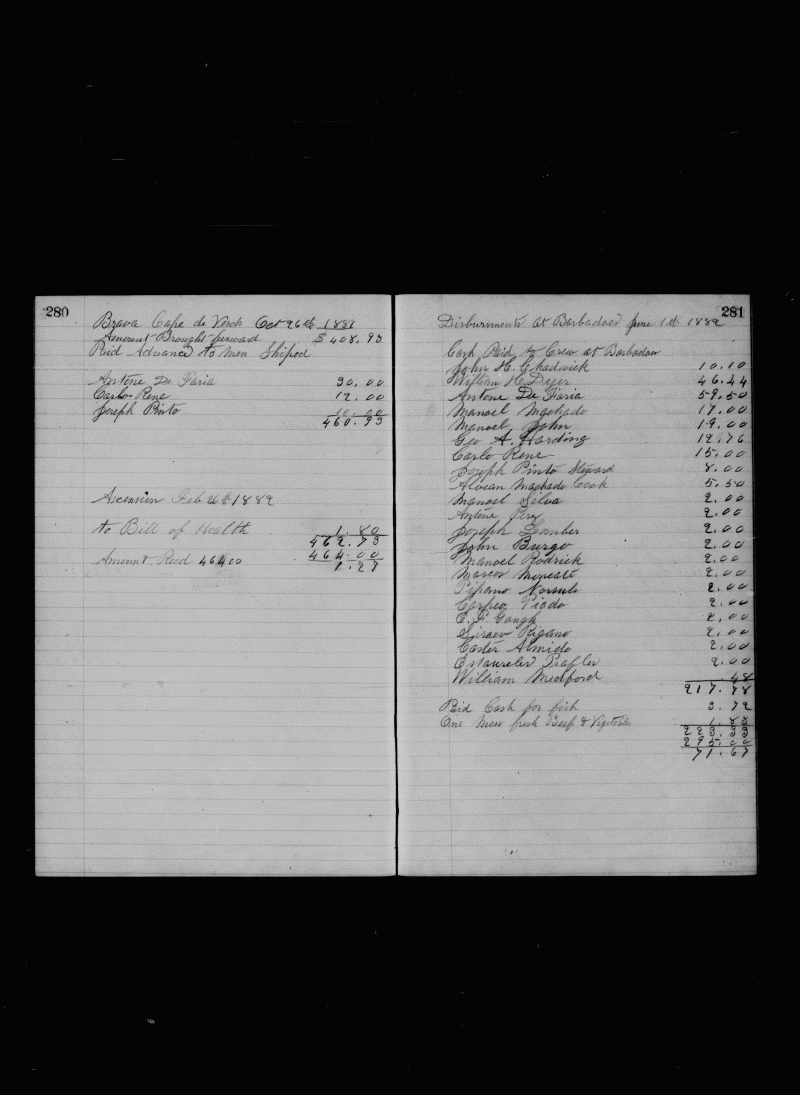 280
Brava Cape de Verde Oct 26th 1881
Amount Brought forward $ 408.93
Paid Advance to Men Shiped
Antone De Faria 30.00
Carlo Rene 12.00
Joseph Pinto 10.00
460.93
Ascension Feb 1882
to Bill of Health 1.80
462.73
464.00
Amount Recd 46400 1.27
281
Disburments at Barbadoes June 1st 1882
Cash Paid to Crew at Barbadoes
John H. Chadwick 10.10
William H. Dyer 46.44
Antone De Faria 59.50
Manoel Machado 17.00
Manoel John 19.00
Geo A. Harding 12.76
Carlo Rene 15.00
Joseph Pinto Steward 8.00
Machado Cook 5.50
Manoel Silva 2.00
Antone 2.00
Joseph Lomber 2.00
John Burgo 2.00
Manoel Rodrick 2.00
Marcos 2.00
2.00
2.00
E. F. Gough 2.00
2.00
Caster Almido 2.00
2.00
William Medford .48
217.78
Paid Cash for fish 3.72
One Mess fresh Beef & Vegetables 1.83
223.33
295.00
71.67